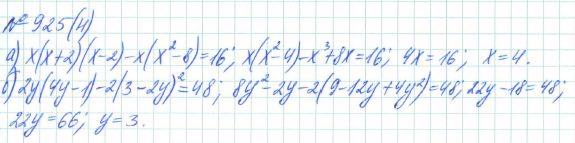 №925(4)
а) x(x+2)(x-2)-x(x²-8)=16; x(x²-4)-x³+8x=16; 4x=16; x=4.
б) 2y(4y-1)-2(3-2y)²=48; 8y²-2y-2(9-12y+4y²)=48; 22y-18=48;
22y=66; y=3.